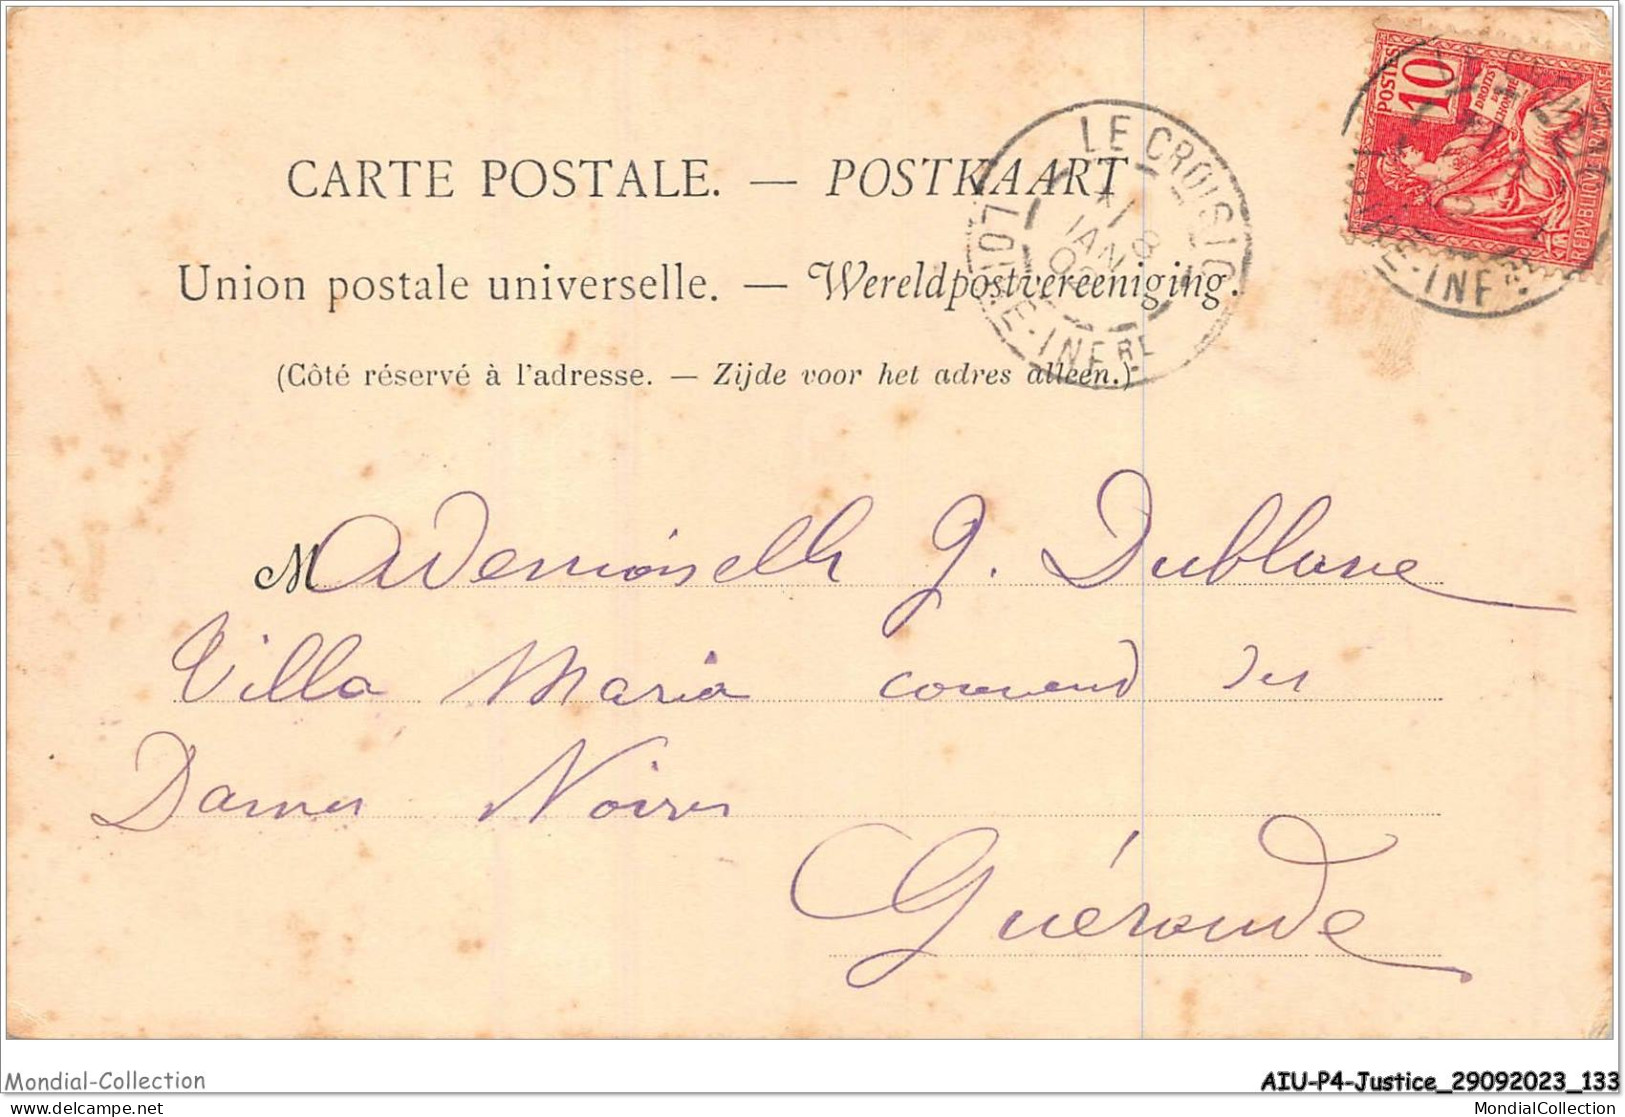 CARTE POSTALE. — POSTKAART
Union postale universelle. — Wereldpostvereeniging.
(Côté réservé à l'adresse. — Zijde voor het adres alleen.)
LE CROISIC
LOIRE-INFRE
18
JAN
POSTES
10
DROITS
DE
L'HOMME
REPVBLIQVE FRANCAISE
INFRE
Mademoiselle G. Dublane
Villa Maria couvend des
Dames Noires
Guérande
Mondial-Collection
AIU-P4-Justice_29092023_133
MondialCollection